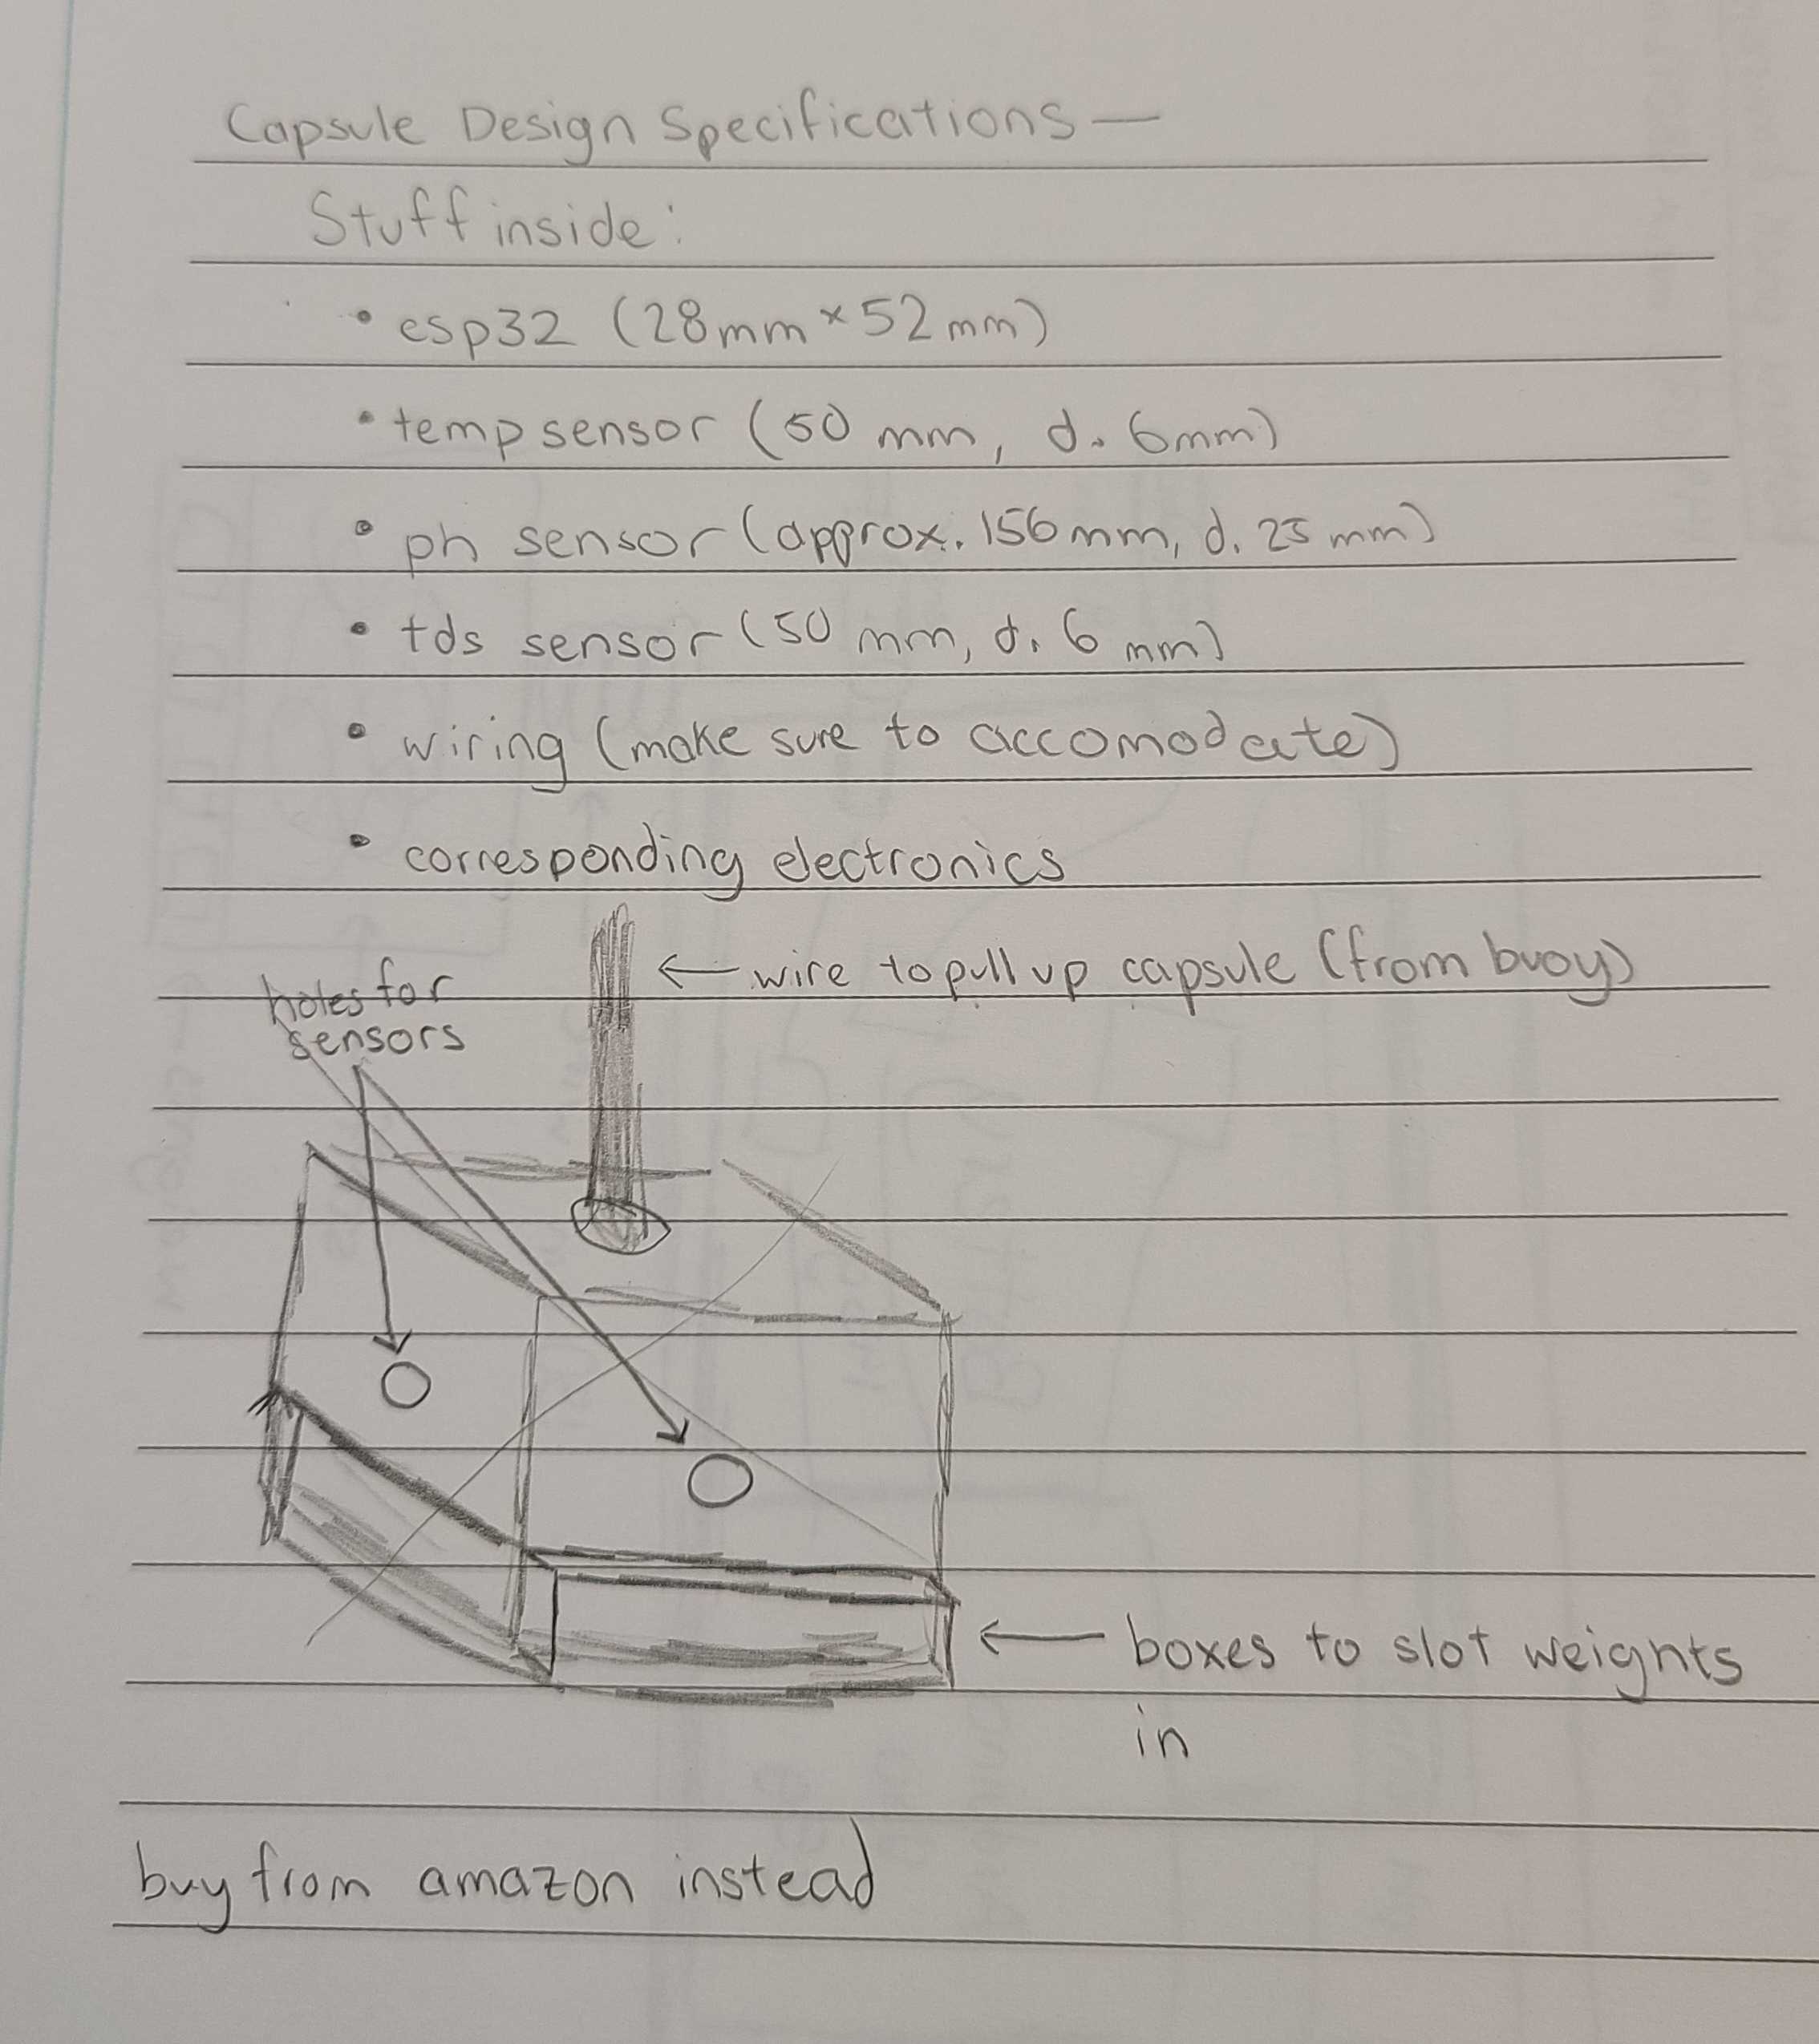 Capsule Design Specifications —
Stuff inside:
• esp32 (28mm × 52mm)
• temp sensor (50 mm, d. 6mm)
• ph sensor (approx. 156mm, d. 25mm)
• tds sensor (50 mm, d. 6 mm)
• wiring (make sure to accomodate)
• corresponding electronics
← wire to pull up capsule (from buoy)
holes for
sensors
← boxes to slot weights
in
buy from amazon instead